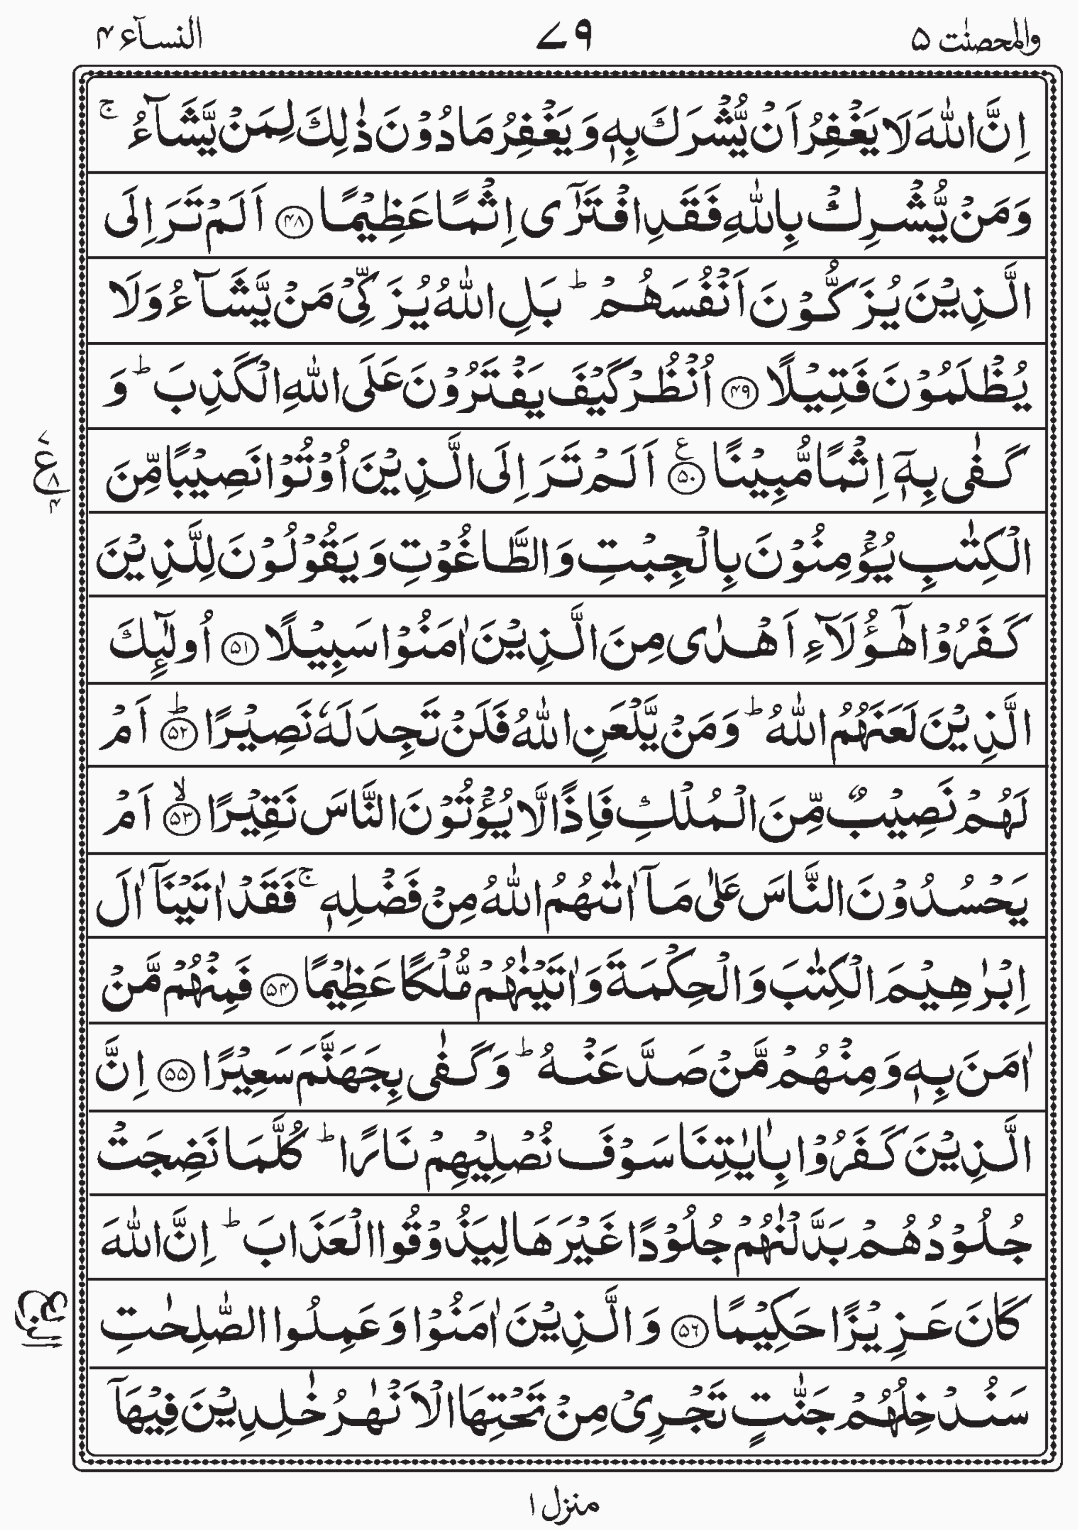 والمحصنٰت ۵
۷۹
النسآء ۴
اِنَّ اللّٰهَ لَا يَغْفِرُ اَنْ يُّشْرَكَ بِهٖ وَ يَغْفِرُ مَا دُوْنَ ذٰلِكَ لِمَنْ يَّشَآءُ ۚ
وَ مَنْ يُّشْرِكْ بِاللّٰهِ فَقَدِ افْتَرٰۤى اِثْمًا عَظِيْمًا ۴۸ اَلَمْ تَرَ اِلَى
الَّذِيْنَ يُزَكُّوْنَ اَنْفُسَهُمْ ؕ بَلِ اللّٰهُ يُزَكِّىْ مَنْ يَّشَآءُ وَ لَا
يُظْلَمُوْنَ فَتِيْلًا ۴۹ اُنْظُرْ كَيْفَ يَفْتَرُوْنَ عَلَى اللّٰهِ الْكَذِبَ ؕ وَ
كَفٰى بِهٖۤ اِثْمًا مُّبِيْنًا ۵۰ ع اَلَمْ تَرَ اِلَى الَّذِيْنَ اُوْتُوْا نَصِيْبًا مِّنَ
۷ ع ۸ ۴
الْكِتٰبِ يُؤْمِنُوْنَ بِالْجِبْتِ وَ الطَّاغُوْتِ وَ يَقُوْلُوْنَ لِلَّذِيْنَ
كَفَرُوْا هٰۤؤُلَآءِ اَهْدٰى مِنَ الَّذِيْنَ اٰمَنُوْا سَبِيْلًا ۵۱ اُولٰٓئِكَ
الَّذِيْنَ لَعَنَهُمُ اللّٰهُ ؕ وَ مَنْ يَّلْعَنِ اللّٰهُ فَلَنْ تَجِدَ لَهٗ نَصِيْرًا ۵۲ؕ اَمْ
لَهُمْ نَصِيْبٌ مِّنَ الْمُلْكِ فَاِذًا لَّا يُؤْتُوْنَ النَّاسَ نَقِيْرًا ۵۳ۙ اَمْ
يَحْسُدُوْنَ النَّاسَ عَلٰى مَاۤ اٰتٰىهُمُ اللّٰهُ مِنْ فَضْلِهٖ ۚ فَقَدْ اٰتَيْنَاۤ اٰلَ
اِبْرٰهِيْمَ الْكِتٰبَ وَ الْحِكْمَةَ وَ اٰتَيْنٰهُمْ مُّلْكًا عَظِيْمًا ۵۴ فَمِنْهُمْ مَّنْ
اٰمَنَ بِهٖ وَ مِنْهُمْ مَّنْ صَدَّ عَنْهُ ؕ وَ كَفٰى بِجَهَنَّمَ سَعِيْرًا ۵۵ اِنَّ
الَّذِيْنَ كَفَرُوْا بِاٰيٰتِنَا سَوْفَ نُصْلِيْهِمْ نَارًا ؕ كُلَّمَا نَضِجَتْ
جُلُوْدُهُمْ بَدَّلْنٰهُمْ جُلُوْدًا غَيْرَهَا لِيَذُوْقُوا الْعَذَابَ ؕ اِنَّ اللّٰهَ
كَانَ عَزِيْزًا حَكِيْمًا ۵۶ وَ الَّذِيْنَ اٰمَنُوْا وَ عَمِلُوا الصّٰلِحٰتِ
الربع
سَنُدْخِلُهُمْ جَنّٰتٍ تَجْرِىْ مِنْ تَحْتِهَا الْاَنْهٰرُ خٰلِدِيْنَ فِيْهَاۤ
منزل ۱